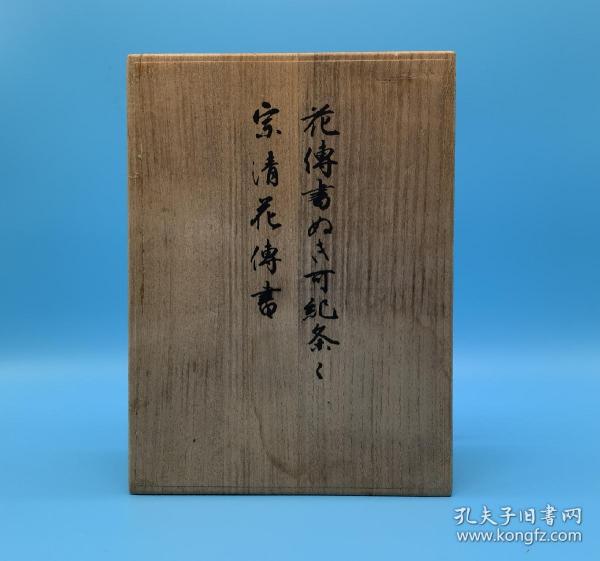 花傳書ぬき可紀条〻
宗清花傳書
孔夫子旧书网
www.kongfz.com